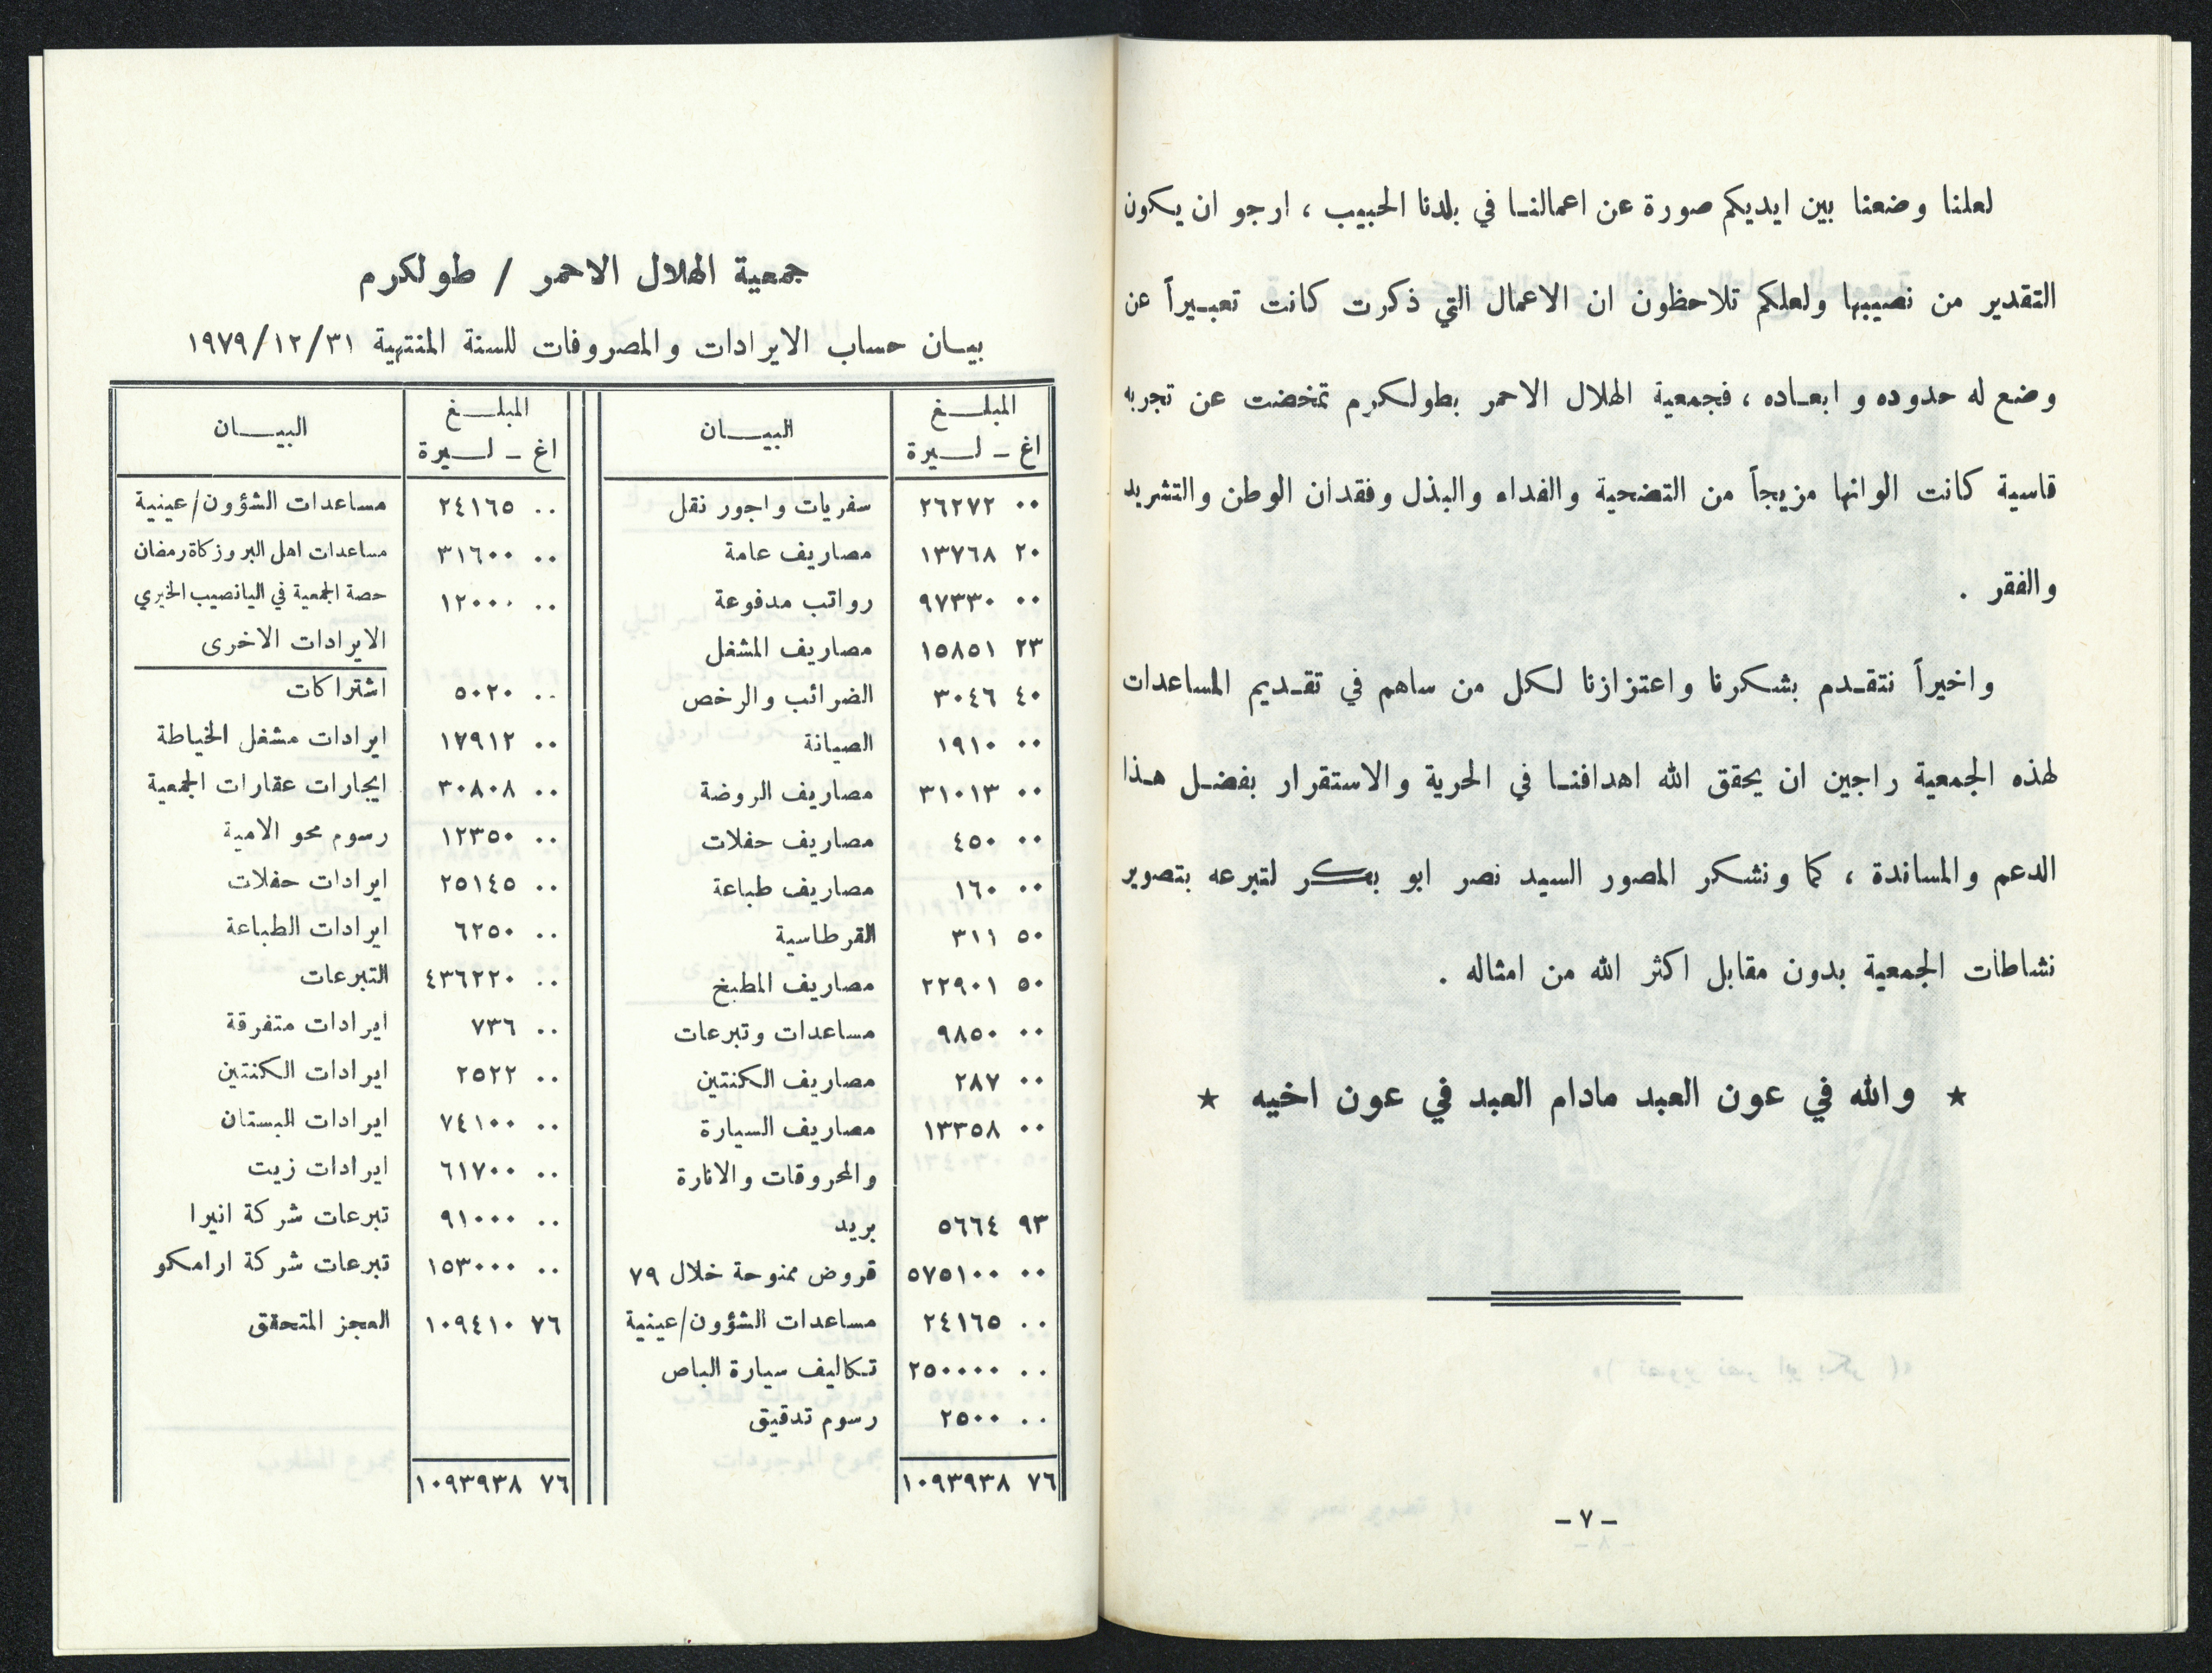 لعلنا وضعنا بين ايديكم صورة عن اعمالنـا في بلدنا الحبيب ، ارجو ان يكون
التقدير من نصيبها ولعلكم تلاحظون ان الاعمال التي ذكرت كانت تعبـيراً عن
وضع له حدوده و ابعـاده ، فجمعية الهلال الاحمر بطولكرم تمخضت عن تجربه
قاسية كانت الوانها مزيجاً من التضحية والفداء والبذل وفقدان الوطن والتشريد
والفقر .
واخيراً نتقـدم بشكرنا واعتزازنا لكل من ساهم في تقـديم المساعدات
لهذه الجمعية راجين ان يحقق الله اهدافنـا في الحرية والاستقرار بفضـل هـذا
الدعم والمساندة ، كما ونشكر المصور السيد نصر ابو بكر لتبرعه بتصوير
نشاطات الجمعية بدون مقابل اكثر الله من امثاله .
★ والله في عون العبد مادام العبد في عون اخيه ★
- ٧ -
جمعية الهلال الاحمر / طولكرم
بيـان حساب الايرادات والمصروفات للسنة المنتهية ١٩٧٩/١٢/٣١
المبلـــغ البيـــان المبلـــغ البيـــان
اغ - لـــيرة اغ - لـــيرة
٠٠ ٢٦٢٧٢ سفريات واجور نقل ٠٠ ٢٤١٦٥ مساعدات الشؤون/عينية
٢٠ ١٣٧٦٨ مصاريف عامة ٠٠ ٣١٦٠٠ مساعدات اهل البر وزكاة رمضان
٠٠ ٩٧٣٣٠ رواتب مدفوعة ٠٠ ١٢٠٠٠ حصة الجمعية في اليانصيب الخيري
٢٣ ١٥٨٥١ مصاريف المشغل الايرادات الاخرى
٤٠ ٣٠٤٦ الضرائب والرخص ٠٠ ٥٠٢٠ اشتراكات
٠٠ ١٩١٠ الصيانة ٠٠ ١٧٩١٢ ايرادات مشغل الخياطة
٠٠ ٣١٠١٣ مصاريف الروضة ٠٠ ٣٠٨٠٨ ايجارات عقارات الجمعية
٠٠ ٤٥٠ مصاريف حفلات ٠٠ ١٢٣٥٠ رسوم محو الامية
٠٠ ١٦٠ مصاريف طباعة ٠٠ ٢٥١٤٥ ايرادات حفلات
٥٠ ٣١١ القرطاسية ٠٠ ٦٢٥٠ ايرادات الطباعة
٥٠ ٢٢٩٠١ مصاريف المطبخ ٠٠ ٤٣٦٢٢٠ التبرعات
٠٠ ٩٨٥٠ مساعدات وتبرعات ٠٠ ٧٣٦ ايرادات متفرقة
٠٠ ٢٨٧ مصاريف الكنتين ٠٠ ٢٥٢٢ ايرادات الكنتين
٠٠ ١٣٣٥٨ مصاريف السيارة ٠٠ ٧٤١٠٠ ايرادات البستان
والمحروقات والانارة ٠٠ ٦١٧٠٠ ايرادات زيت
٩٣ ٥٦٦٤ بريد ٠٠ ٩١٠٠٠ تبرعات شركة انيرا
٠٠ ٥٧٥١٠٠ قروض ممنوحة خلال ٧٩ ٠٠ ١٥٣٠٠٠ تبرعات شركة ارامكو
٠٠ ٢٤١٦٥ مساعدات الشؤون/عينية ٧٦ ١٠٩٤١٠ العجز المتحقق
٠٠ ٢٥٠٠٠٠ تكاليف سيارة الباص
٠٠ ٢٥٠٠ رسوم تدقيق
٧٦ ١٠٩٣٩٣٨ ٧٦ ١٠٩٣٩٣٨